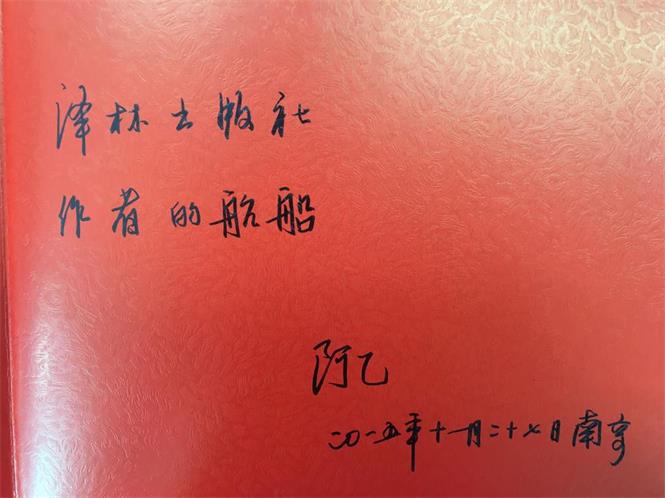 译林出版社
作者的航船
阿乙
二〇一五年十一月二十七日南京